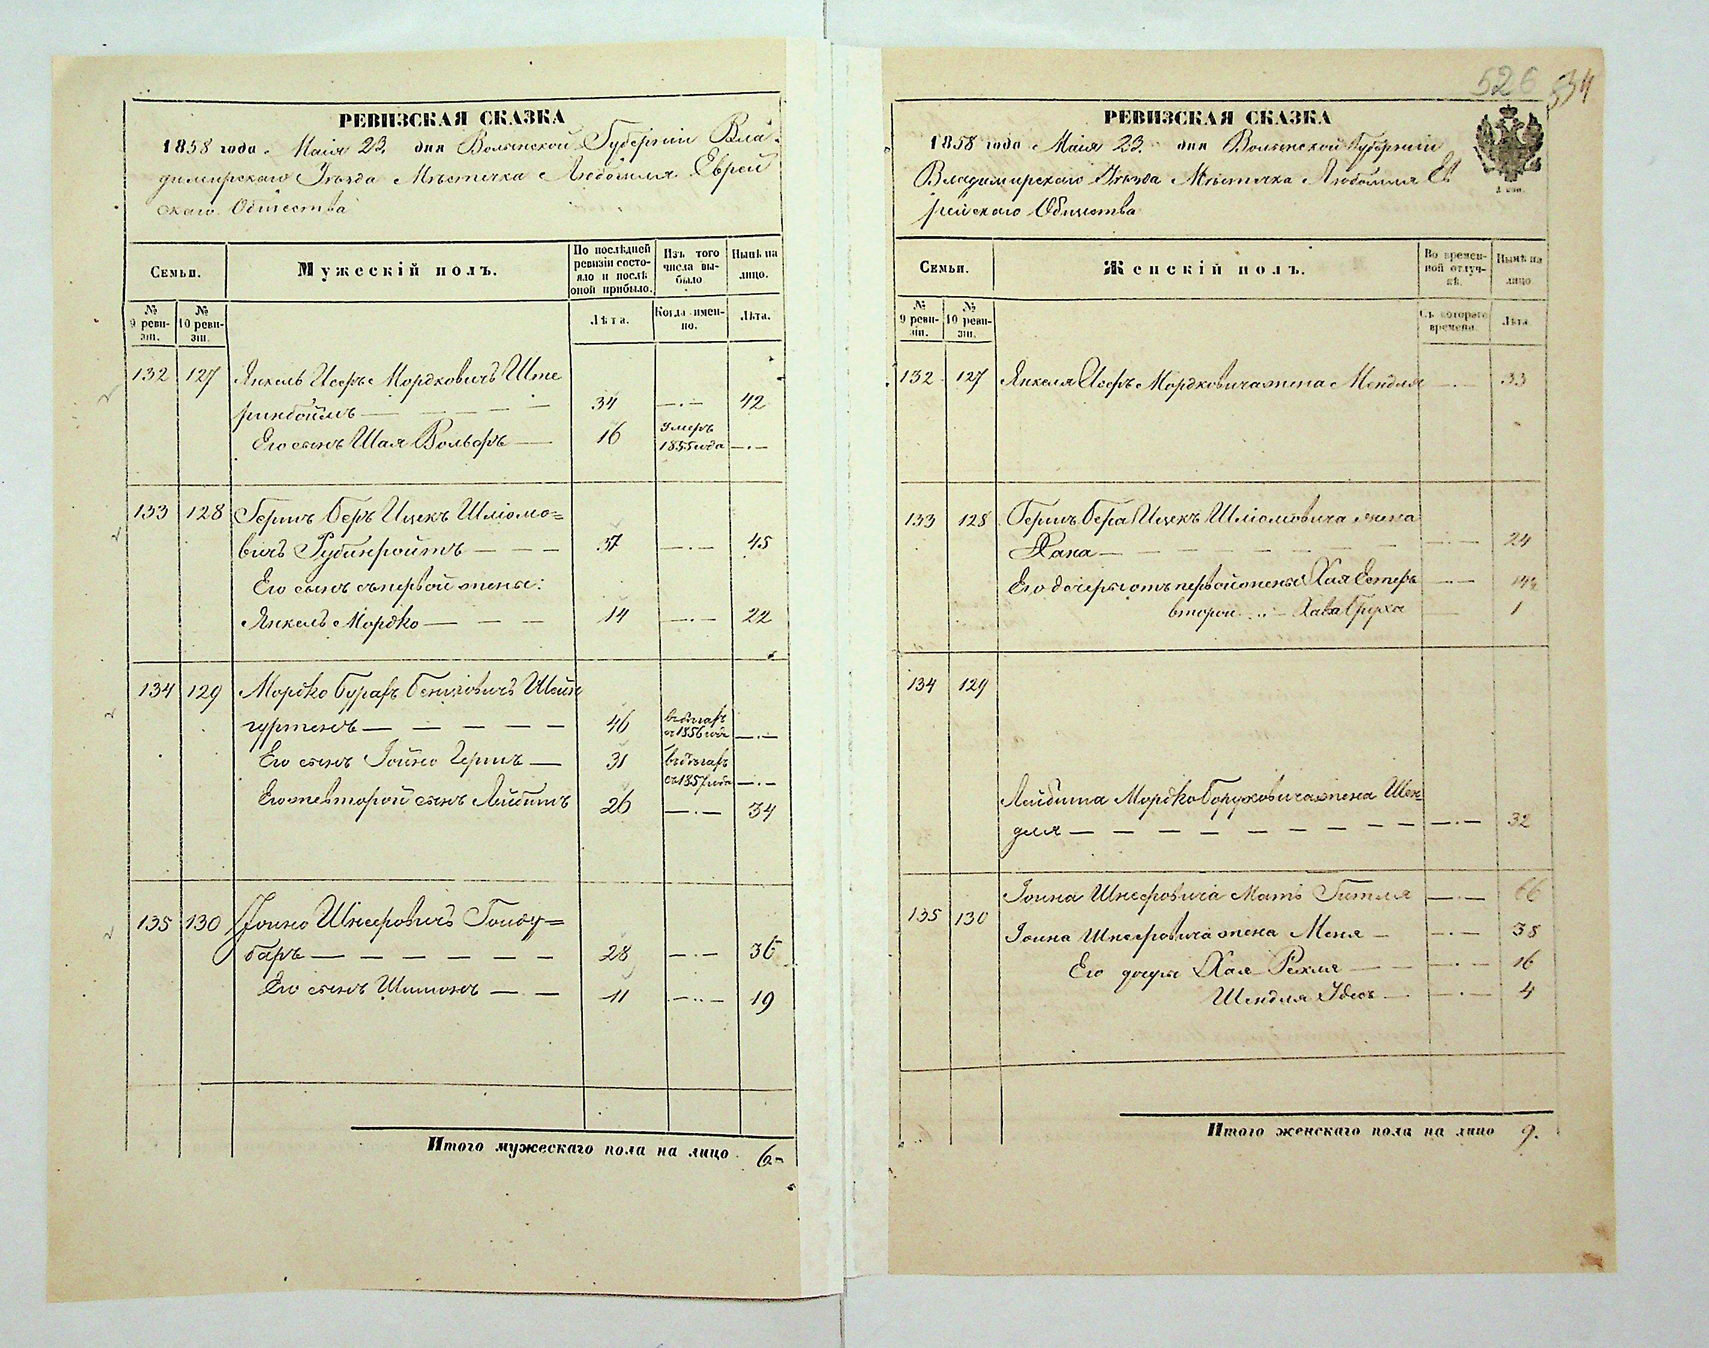 РЕВИЗСКАЯ СКАЗКА
1858 года Маія 23 дня Волынской Губерніи Вла-
димирскаго Уѣзда Мѣстечка Любомля Еврей
скаго Общества
Семьи.
Мужескій полъ.
По послѣдней ревизіи состояло и послѣ оной прибыло.
Изъ того числа выбыло
Нынѣ на лицо.
№ 9 ревизіи.
№ 10 ревизіи.
Лѣта.
Когда именно.
Лѣта.
132 127 Янкель Иосфъ Мордковичъ Ште
ринбоймъ 34 42
Его сынъ Шая Вольфъ 16 умеръ 1855 года
133 128 Гершъ Беръ Ицекъ Шліомо=
вичъ Рубинройтъ 37 45
Его сынъ съ первой жены:
Янкель Мордко 14 22
134 129 Мордко Бурах Шейн
гуртенъ 46 1856
Его сынъ Іойно Гершъ 31 съ 1857 года
Его же второй сынъ Лейбишъ 26 34
135 130 Іоино Шнееровичъ
баръ 28 36
Его сынъ Шимонъ 11 19
Итого мужескаго пола на лицо 6.
526 534
РЕВИЗСКАЯ СКАЗКА
1858 года Маія 23 дня Волынской Губерніи
Владимирскаго Уѣзда Мѣстечка Любомля Ев
рейскаго Общества
Семьи.
Женскій полъ.
Во временной отлучкѣ.
Нынѣ на лицо
№ 9 ревизіи.
№ 10 ревизіи.
Съ котораго времени.
Лѣта
132 127 Янкеля Иосфъ Мордковича жена Мендля 33
133 128 Гершъ Бера Ицекъ Шліомовича жена
Хана 24
Его дочери отъ первой жены Хая Естеръ 14½
второй Хава Груха 1
134 129
Лейбиша Мордко Боруховича жена Шен-
деля 32
Іоина Шнееровича Мать Гитля 66
135 130 Іоина Шнееровича жена Меня 38
Его дочери Хая Рехля 16
Шендля Удесъ 4
Итого женскаго пола на лицо 9.